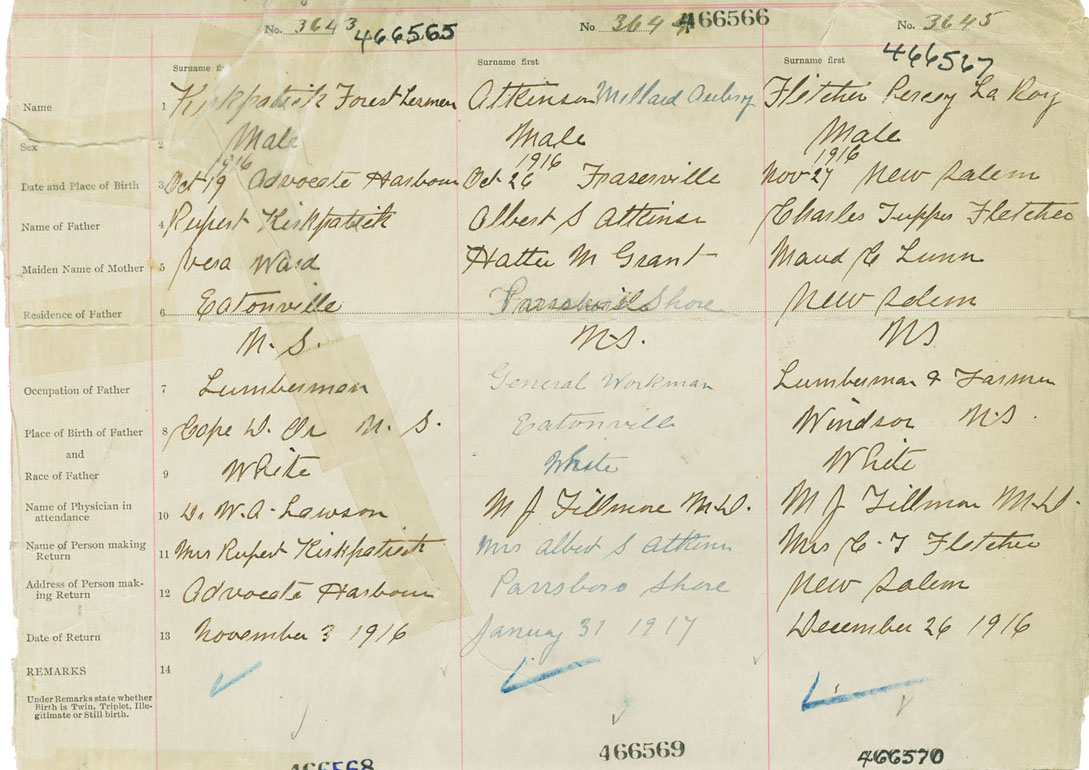 No. 3643 No. 3644 No. 3645
466565 466566 466567
Surname first Surname first
Name 1 Kirkpatrick Forest Atkinson Millard Aubry Fletcher Percey La Roy
Sex 2 Male Male Male
1916 1916 1916
Date and Place of Birth 3 Oct 19 Advocate Harbour Oct 26 Fraserville Nov 27 New Salem
Name of Father 4 Rupert Kirkpatrick Albert S Atkinson Charles Tupper Fletcher
Maiden Name of Mother 5 Vera Ward Hattie M Grant Maud C Lunn
Residence of Father 6 Eatonville Shore New Salem
N. S. N.S. N S
Occupation of Father 7 Lumberman General Workman Lumberman & Farmer
Place of Birth of Father 8 Cape D. Or N. S. Eatonville Windsor N.S.
and
Race of Father 9 White White White
Name of Physician in
attendance 10 Dr W. A. Lawson M J Fillmore M.D. M J Fillmore M.D.
Name of Person making
Return 11 Mrs Rupert Kirkpatrick Mrs Albert S Atkinson Mrs C. T Fletcher
Address of Person mak-
ing Return 12 Advocate Harbour Parrsboro Shore New Salem
Date of Return 13 November 3 1916 January 31 1917 December 26 1916
REMARKS 14
Under Remarks state whether
Birth is Twin, Triplet, Ille-
gitimate or Still birth.
466568 466569 466570